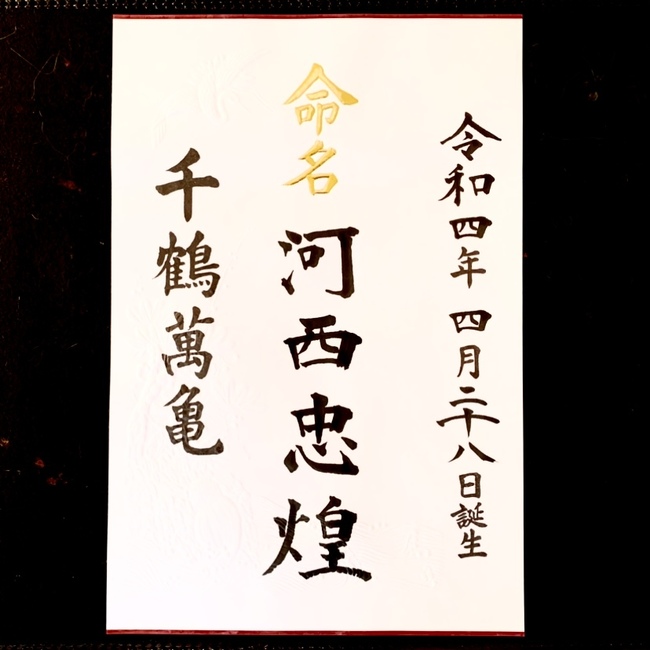 令和四年 四月二十八日誕生
命名 河西忠煌
千鶴萬亀